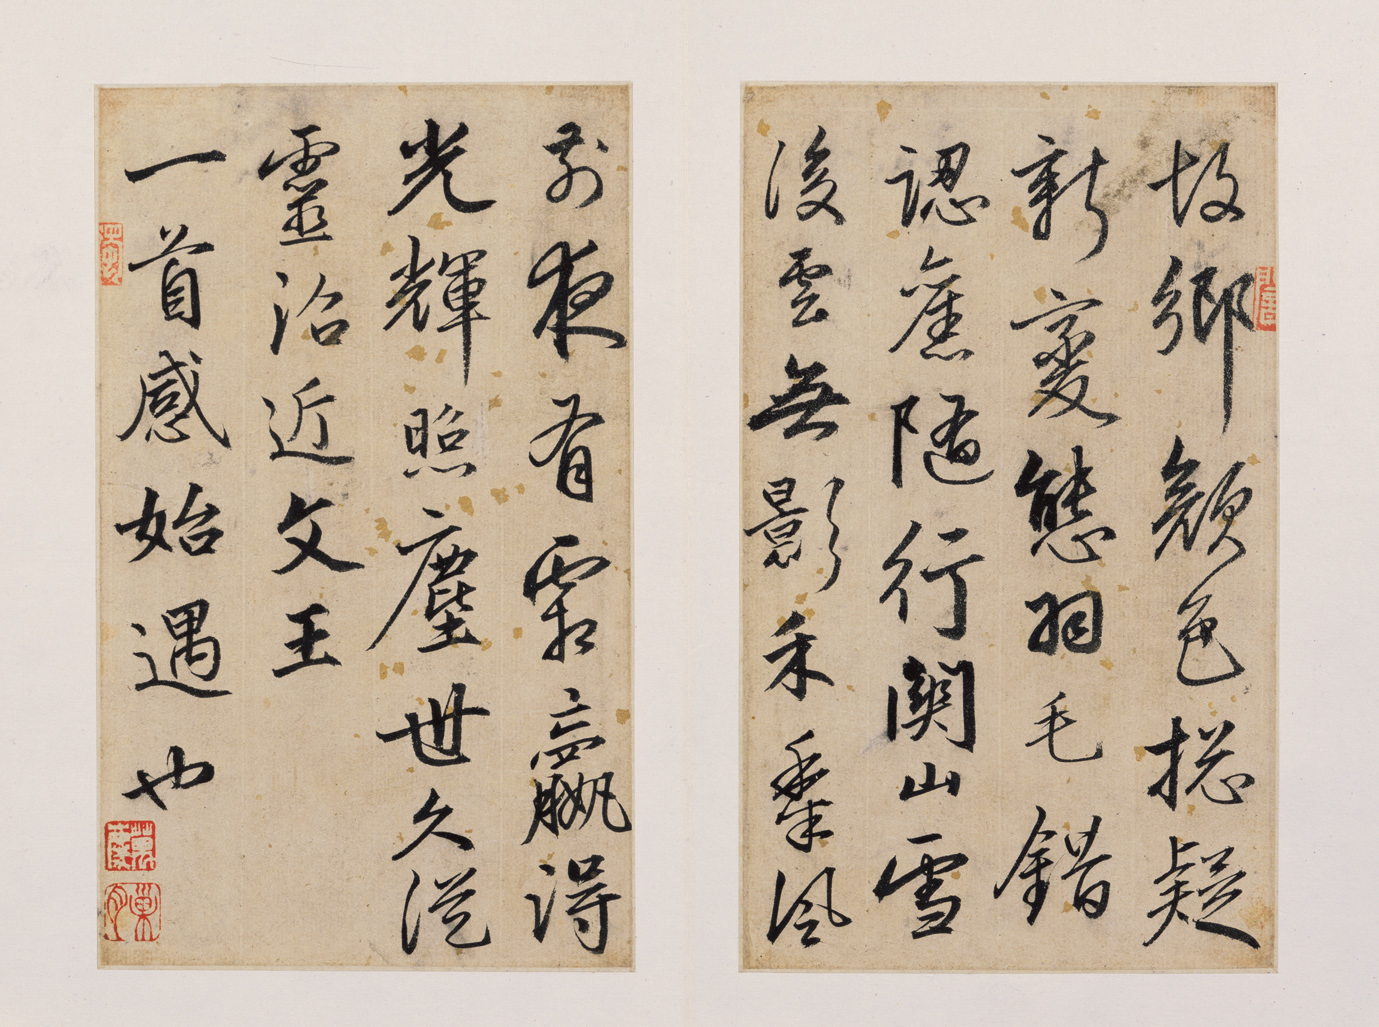 故鄉顏色揔疑
新變態羽毛錯
認舊隨行關山雪
後雲無影禾黍風
前夜有霜贏得
光輝照塵世久從
靈沼近文王
一首感始遇也